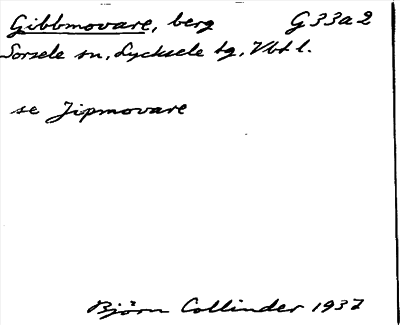 Gibbmovare, berg G 33 a 2
Sorsele sn, Lycksele tg, Vbt l.
se Jipmovare
Björn Collinder 1937